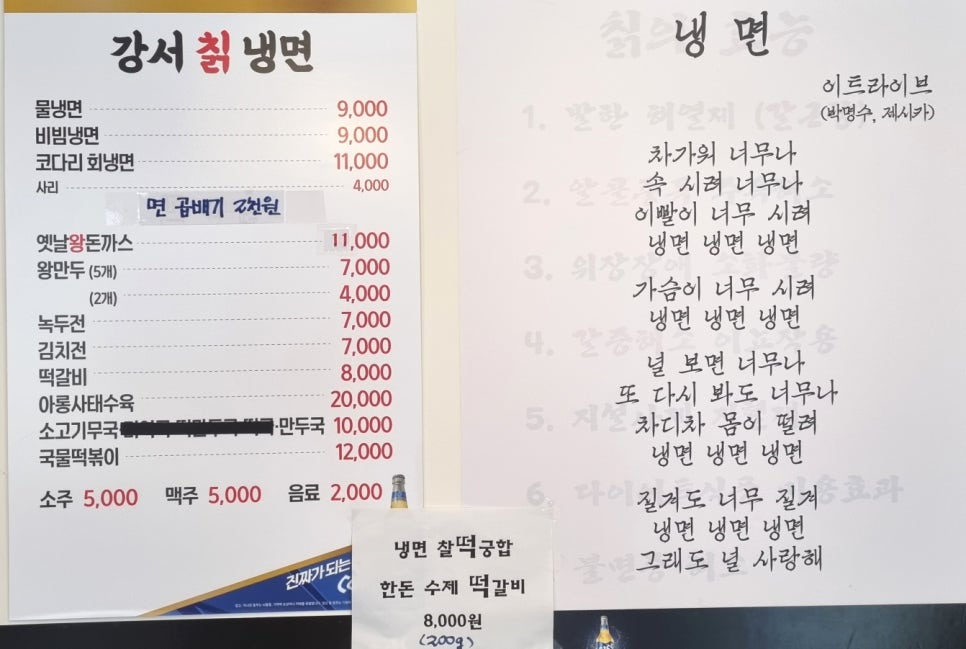 강서 칡 냉면
물냉면 9,000
비빔냉면 9,000
코다리 회냉면 11,000
사리 4,000
면 곱배기 2천원
옛날왕돈까스 11,000
왕만두 (5개) 7,000
(2개) 4,000
녹두전 7,000
김치전 7,000
떡갈비 8,000
아롱사태수육 20,000
소고기무국 ·만두국 10,000
국물떡볶이 12,000
소주 5,000 맥주 5,000 음료 2,000
진짜가 되는
냉면 찰떡궁합
한돈 수제 떡갈비
8,000원
(200g)
냉 면
이트라이브
(박명수, 제시카)
차가워 너무나
속 시려 너무나
이빨이 너무 시려
냉면 냉면 냉면
가슴이 너무 시려
냉면 냉면 냉면
널 보면 너무나
또 다시 봐도 너무나
차디차 몸이 떨려
냉면 냉면 냉면
질겨도 너무 질겨
냉면 냉면 냉면
그래도 널 사랑해